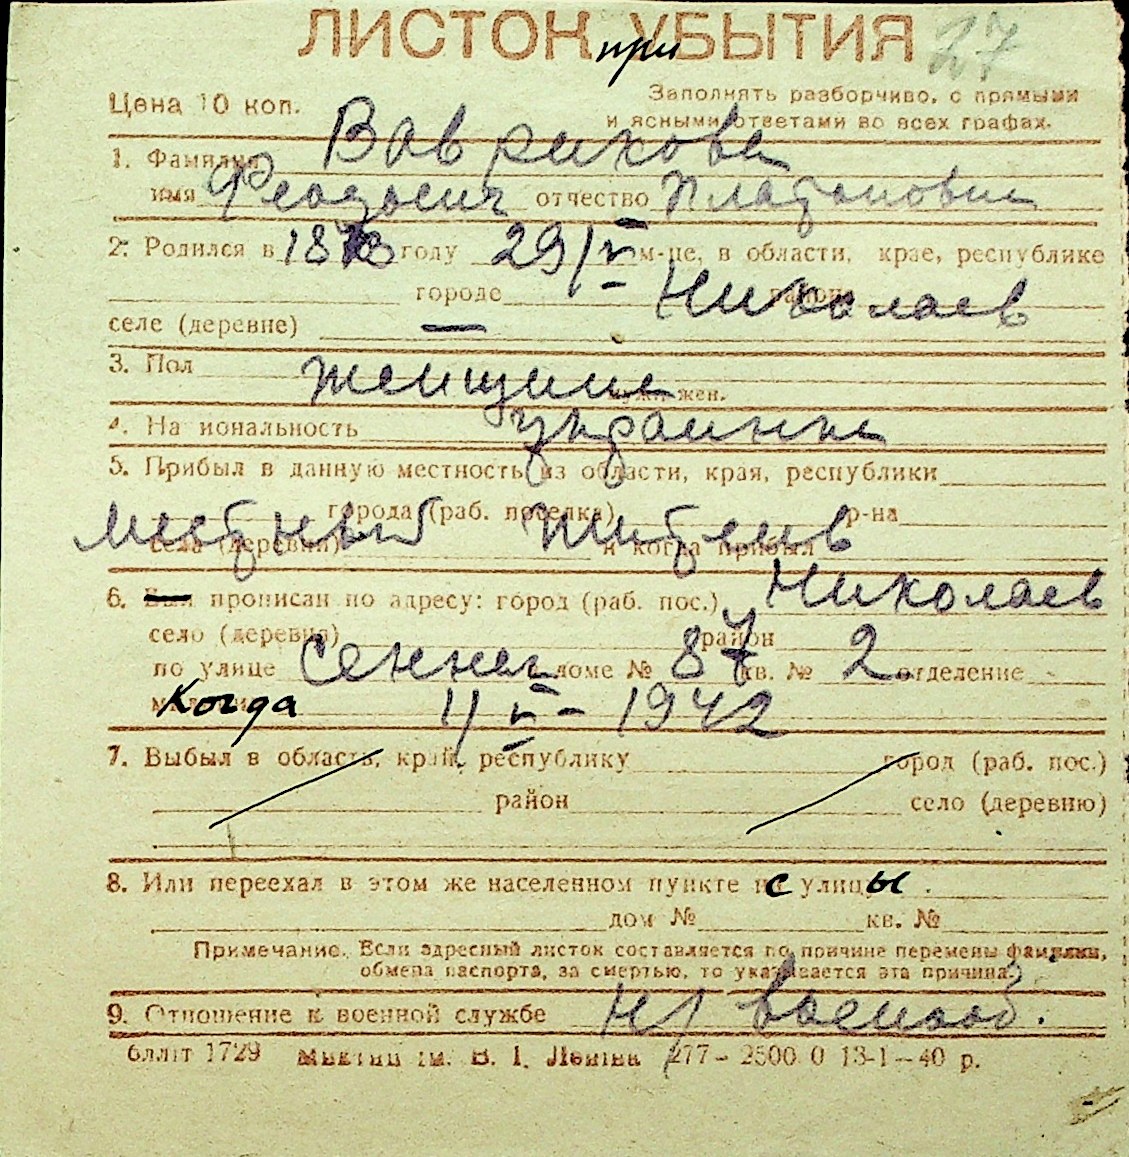 ЛИСТОК при УБЫТИЯ 27
Цена 10 коп.
Заполнять разборчиво, с прямыми
и ясными ответами во всех графах.
1. Фамилия Ваврикова
имя Феодосия отчество Платоновна
2. Родился в 1873 году 29/V м-це, в области, крае, республике
городе Николаев района
селе (деревне) —
3. Пол женщина
муж. жен.
4. Национальность украинка
5. Прибыл в данную местность из области, края, республики
города (раб. поселка) р-на
местный житель
села (деревни) и когда прибыл
6. Был прописан по адресу: город (раб. пос.) Николаев
село (деревня) район
по улице Сенная в доме № 87 кв. № 2 отделение
Когда 1/V – 1942
7. Выбыл в область, край, республику город (раб. пос.)
район село (деревню)
8. Или переехал в этом же населенном пункте с улицы
дом № кв. №
Примечание. Если адресный листок составляется по причине перемены фамилии,
обмена паспорта, за смертью, то указывается эта причина.
9. Отношение к военной службе н/военооб.
1729 ім. В. І. Леніна 277–2500.0 13-1–40 р.